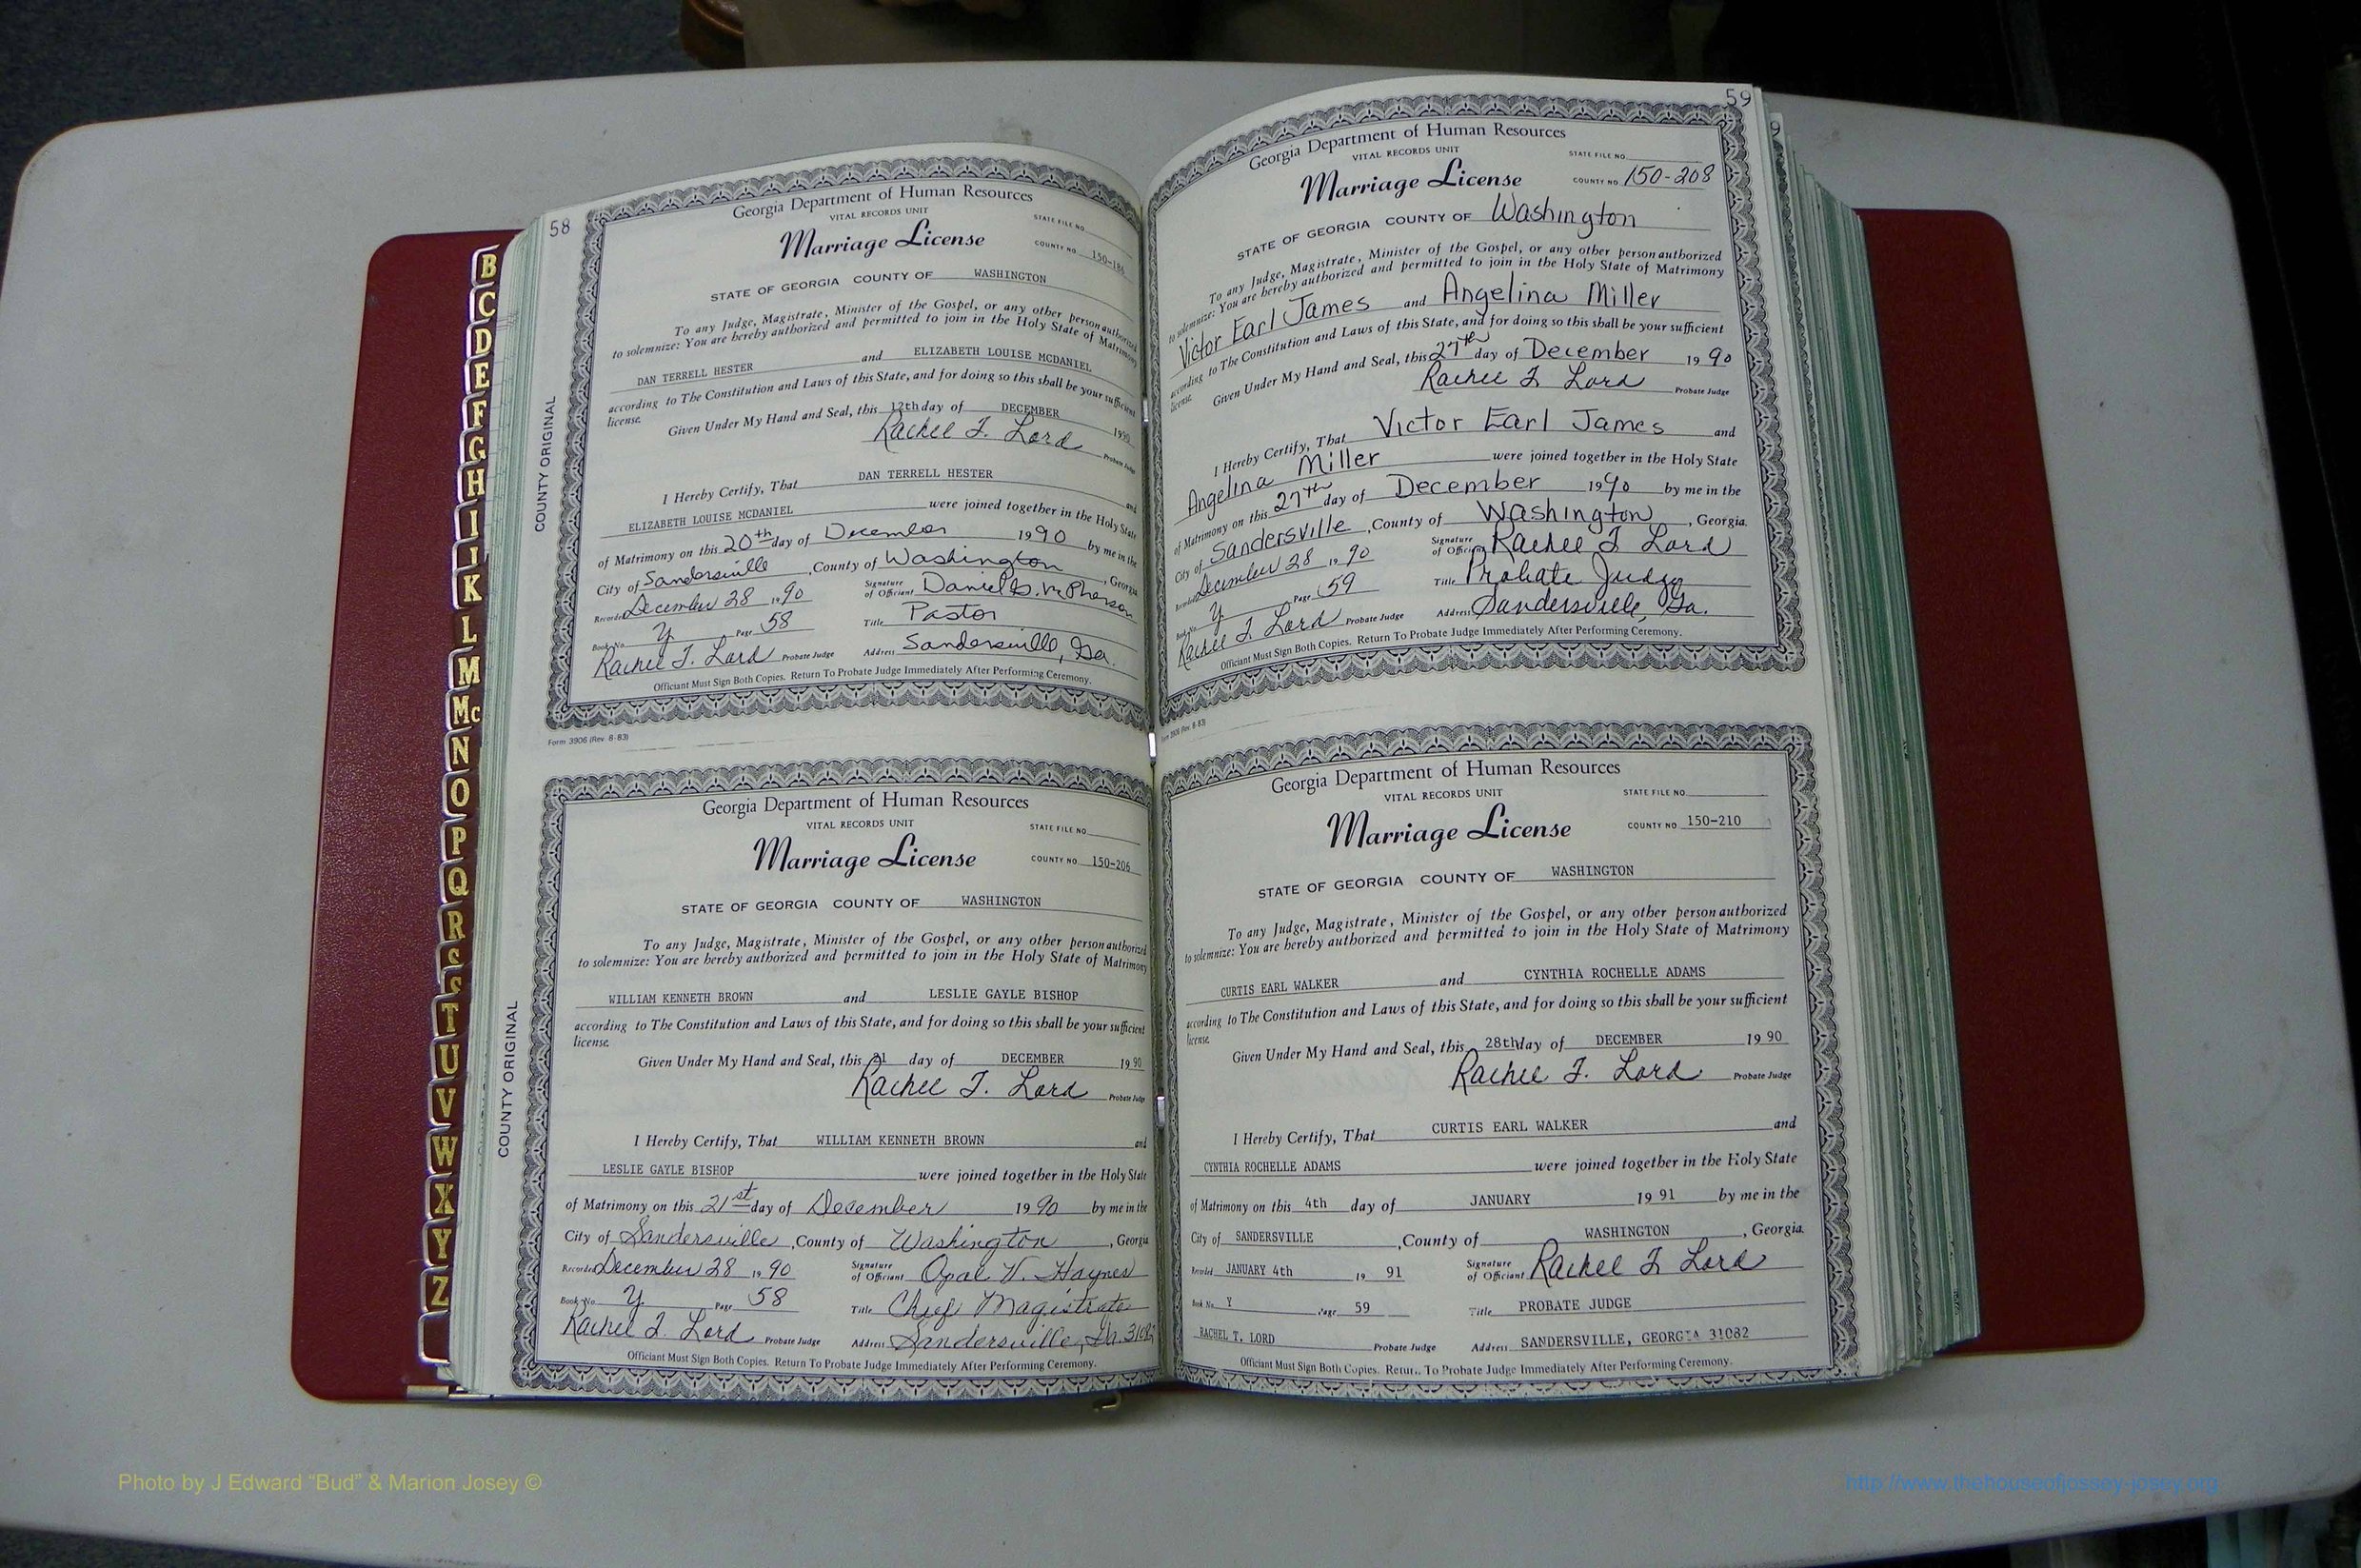 58
Georgia Department of Human Resources
VITAL RECORDS UNIT
STATE FILE NO.
Marriage License
COUNTY NO. 150-186
STATE OF GEORGIA COUNTY OF WASHINGTON
To any Judge, Magistrate, Minister of the Gospel, or any other person authorized
to solemnize: You are hereby authorized and permitted to join in the Holy State of Matrimony
DAN TERRELL HESTER and ELIZABETH LOUISE MCDANIEL
according to The Constitution and Laws of this State, and for doing so this shall be your sufficient
license.
Given Under My Hand and Seal, this 12th day of DECEMBER 1990
Rachel T. Lord Probate Judge
I Hereby Certify, That DAN TERRELL HESTER and
ELIZABETH LOUISE MCDANIEL were joined together in the Holy State
of Matrimony on this 20th day of December 1990 by me in the
City of Sandersville, County of Washington, Georgia
Recorded December 28 1990
Signature of Officiant Daniel B. McPherson
Book No. Y Page 58
Title Pastor
Rachel T. Lord Probate Judge
Address Sandersville, Ga.
Officiant Must Sign Both Copies. Return To Probate Judge Immediately After Performing Ceremony.
Form 3906 (Rev. 8-83)
COUNTY ORIGINAL
Georgia Department of Human Resources
VITAL RECORDS UNIT
STATE FILE NO.
Marriage License
COUNTY NO. 150-206
STATE OF GEORGIA COUNTY OF WASHINGTON
To any Judge, Magistrate, Minister of the Gospel, or any other person authorized
to solemnize: You are hereby authorized and permitted to join in the Holy State of Matrimony
WILLIAM KENNETH BROWN and LESLIE GAYLE BISHOP
according to The Constitution and Laws of this State, and for doing so this shall be your sufficient
license.
Given Under My Hand and Seal, this 21 day of DECEMBER 1990
Rachel T. Lord Probate Judge
I Hereby Certify, That WILLIAM KENNETH BROWN and
LESLIE GAYLE BISHOP were joined together in the Holy State
of Matrimony on this 21st day of December 1990 by me in the
City of Sandersville, County of Washington, Georgia
Recorded December 28 1990
Signature of Officiant Opal V. Haynes
Book No. Y Page 58
Title Chief Magistrate
Rachel T. Lord Probate Judge
Address Sandersville, Ga. 31082
Officiant Must Sign Both Copies. Return To Probate Judge Immediately After Performing Ceremony.
COUNTY ORIGINAL
59
Georgia Department of Human Resources
VITAL RECORDS UNIT
STATE FILE NO.
Marriage License
COUNTY NO. 150-208
STATE OF GEORGIA COUNTY OF Washington
To any Judge, Magistrate, Minister of the Gospel, or any other person authorized
to solemnize: You are hereby authorized and permitted to join in the Holy State of Matrimony
Victor Earl James and Angelina Miller
according to The Constitution and Laws of this State, and for doing so this shall be your sufficient
license.
Given Under My Hand and Seal, this 27th day of December 1990
Rachel T. Lord Probate Judge
I Hereby Certify, That Victor Earl James and
Angelina Miller were joined together in the Holy State
of Matrimony on this 27th day of December 1990 by me in the
City of Sandersville, County of Washington, Georgia.
Recorded December 28 1990
Signature of Officiant Rachel T. Lord
Book No. Y Page 59
Title Probate Judge
Rachel T. Lord Probate Judge
Address Sandersville, Ga.
Officiant Must Sign Both Copies. Return To Probate Judge Immediately After Performing Ceremony.
Form 3906 (Rev. 8-83)
Georgia Department of Human Resources
VITAL RECORDS UNIT
STATE FILE NO.
Marriage License
COUNTY NO. 150-210
STATE OF GEORGIA COUNTY OF WASHINGTON
To any Judge, Magistrate, Minister of the Gospel, or any other person authorized
to solemnize: You are hereby authorized and permitted to join in the Holy State of Matrimony
CURTIS EARL WALKER and CYNTHIA ROCHELLE ADAMS
according to The Constitution and Laws of this State, and for doing so this shall be your sufficient
license.
Given Under My Hand and Seal, this 28th day of DECEMBER 1990
Rachel T. Lord Probate Judge
I Hereby Certify, That CURTIS EARL WALKER and
CYNTHIA ROCHELLE ADAMS were joined together in the Holy State
of Matrimony on this 4th day of JANUARY 1991 by me in the
City of SANDERSVILLE, County of WASHINGTON, Georgia.
Recorded JANUARY 4th 1991
Signature of Officiant Rachel T. Lord
Book No. Y Page 59
Title PROBATE JUDGE
RACHEL T. LORD Probate Judge
Address SANDERSVILLE, GEORGIA 31082
Officiant Must Sign Both Copies. Return To Probate Judge Immediately After Performing Ceremony.
B
C
D
E
F
G
H
I
K
L
M
Mc
N
O
P
Q
R
S
T
U
V
W
X
Y
Z
Photo by J Edward “Bud” & Marion Josey ©
http://www.thehouseofjossey-josey.org